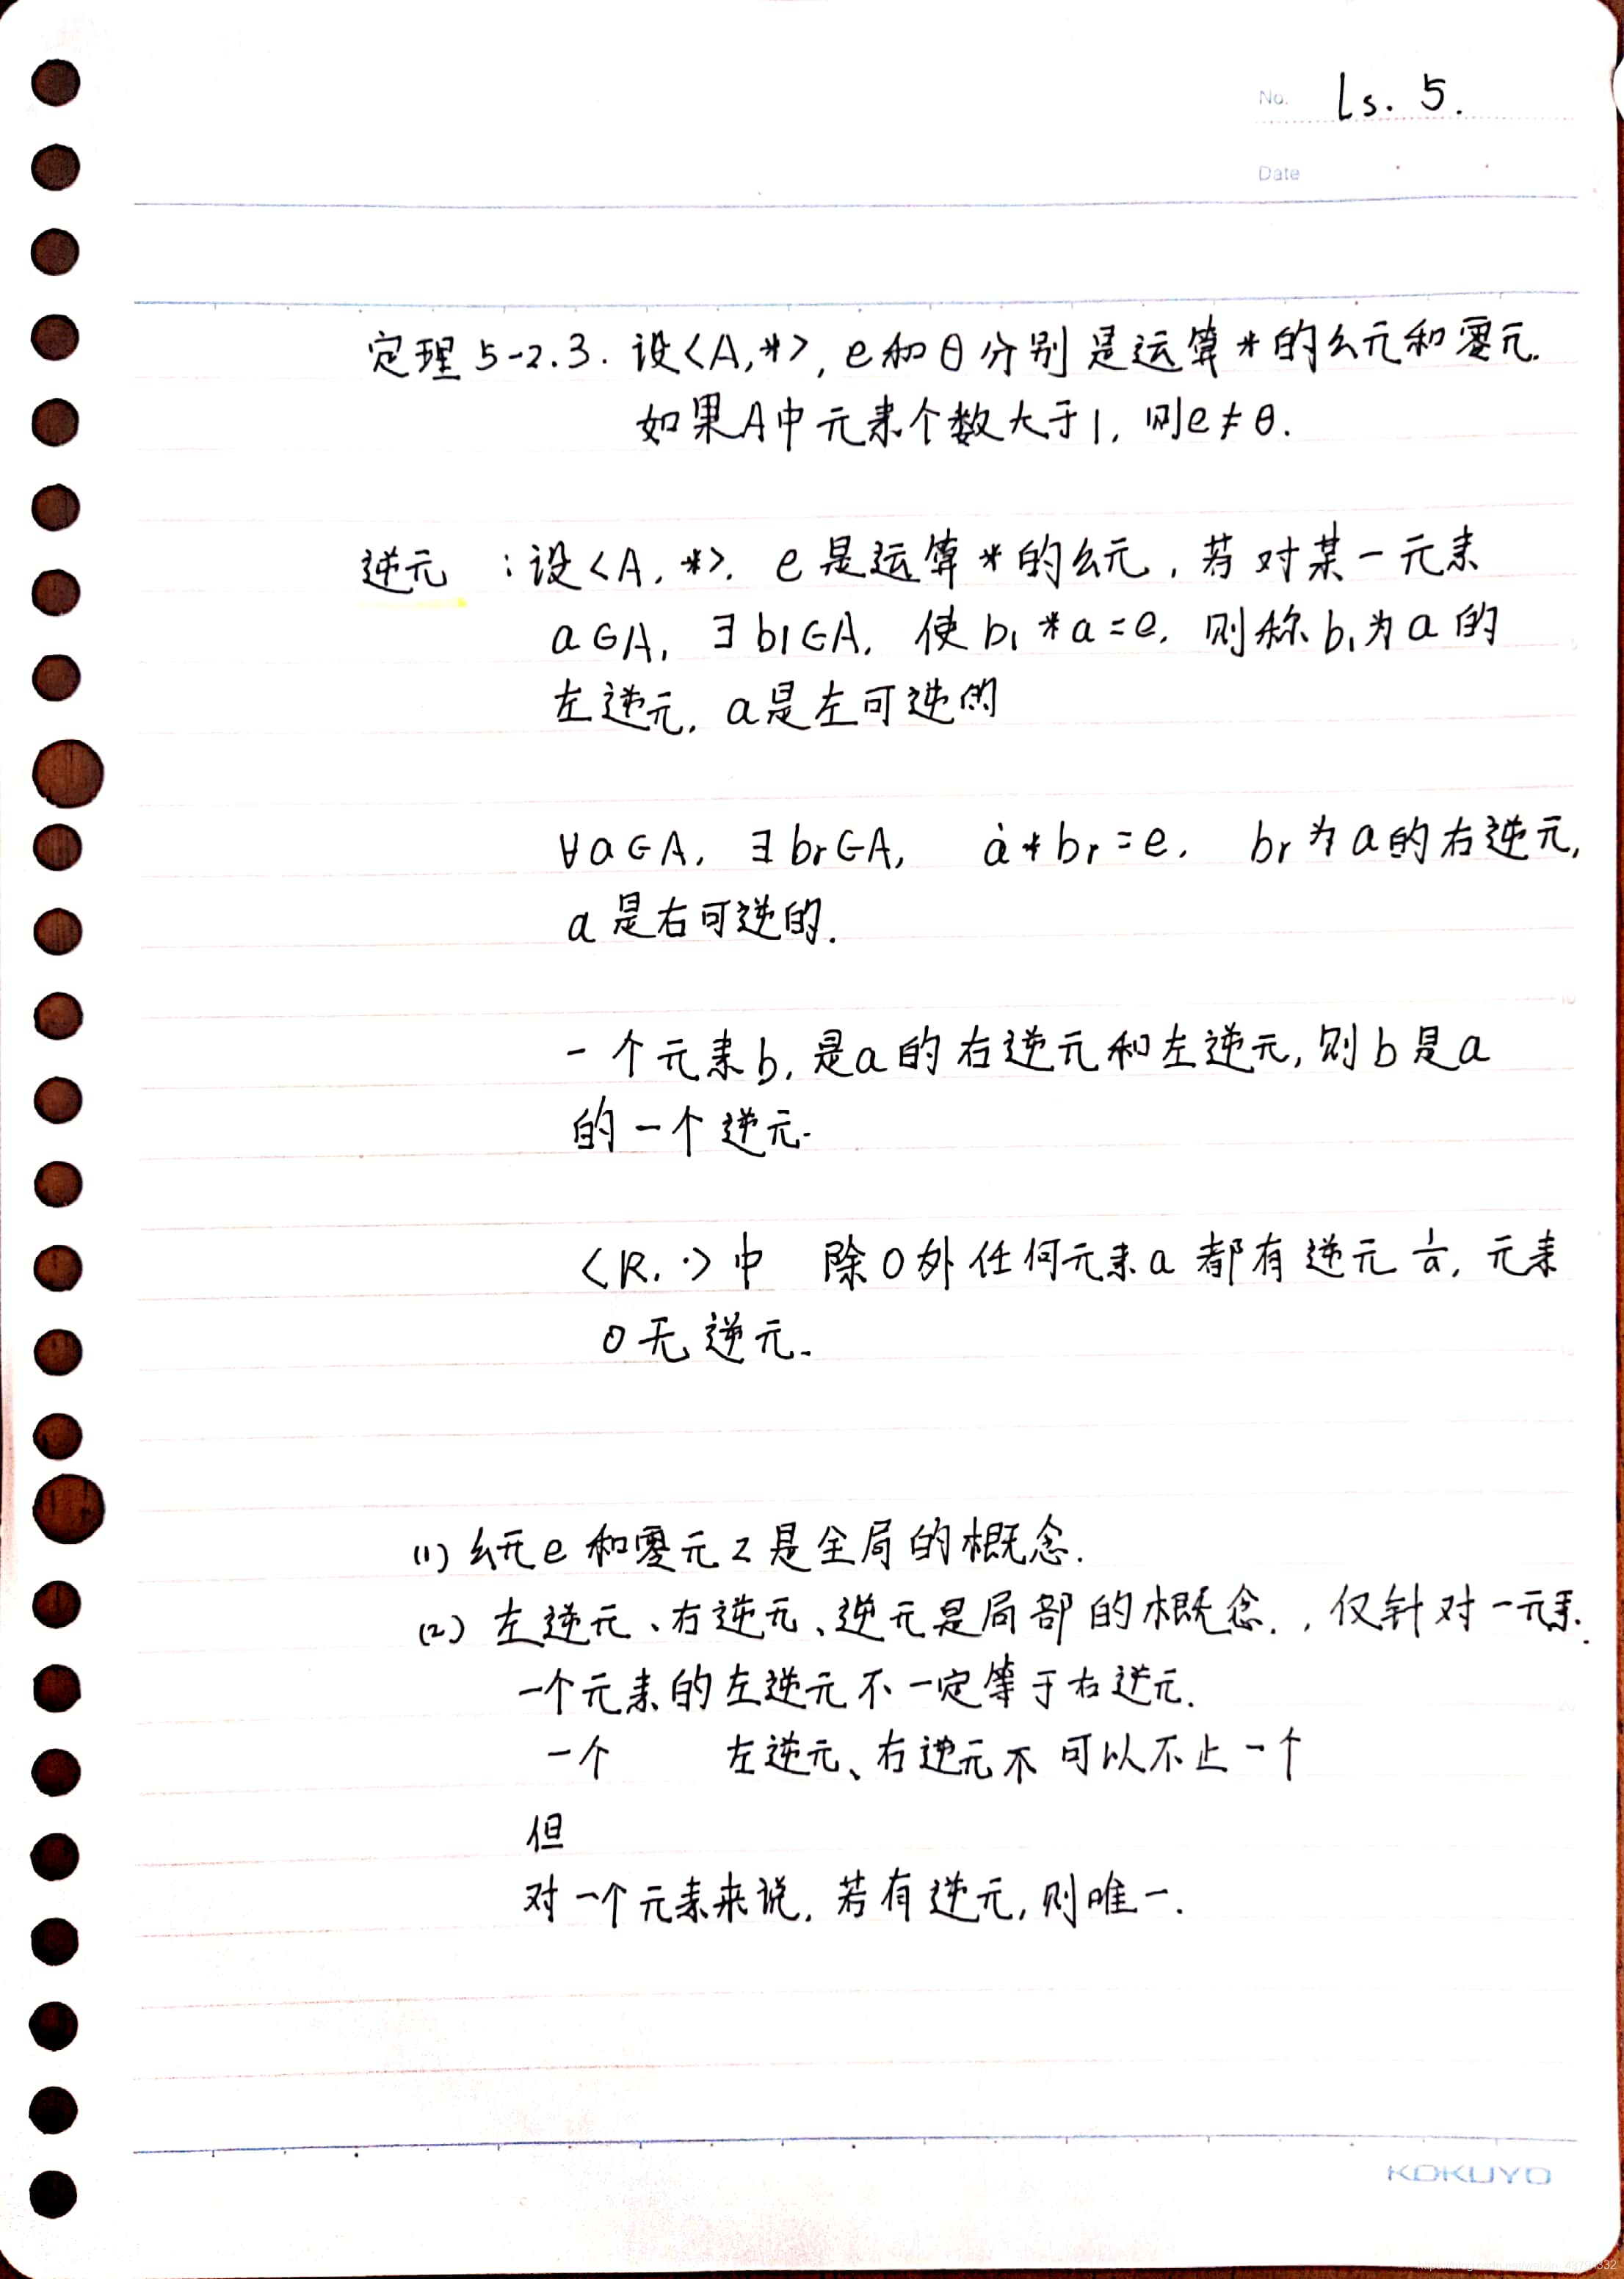 No. Ls. 5.
Date
定理5-2.3. 设<A,*>, e和θ分别是运算*的幺元和零元.
如果A中元素个数大于1, 则e≠θ.
逆元 : 设<A, *>. e是运算*的幺元, 若对某一元素
a∈A, ∃bl∈A, 使bl*a=e, 则称bl为a的
左逆元, a是左可逆的
∀a∈A, ∃br∈A, a*br=e, br为a的右逆元,
a是右可逆的.
一个元素b, 是a的右逆元和左逆元, 则b是a
的一个逆元.
<R, ·>中 除0外任何元素a都有逆元1/a, 元素
0无逆元.
(1) 幺元e和零元z是全局的概念.
(2) 左逆元、右逆元、逆元是局部的概念., 仅针对一元素.
一个元素的左逆元不一定等于右逆元.
一个 左逆元、右逆元不可以不止一个
但
对一个元素来说, 若有逆元, 则唯一.
KOKUYO